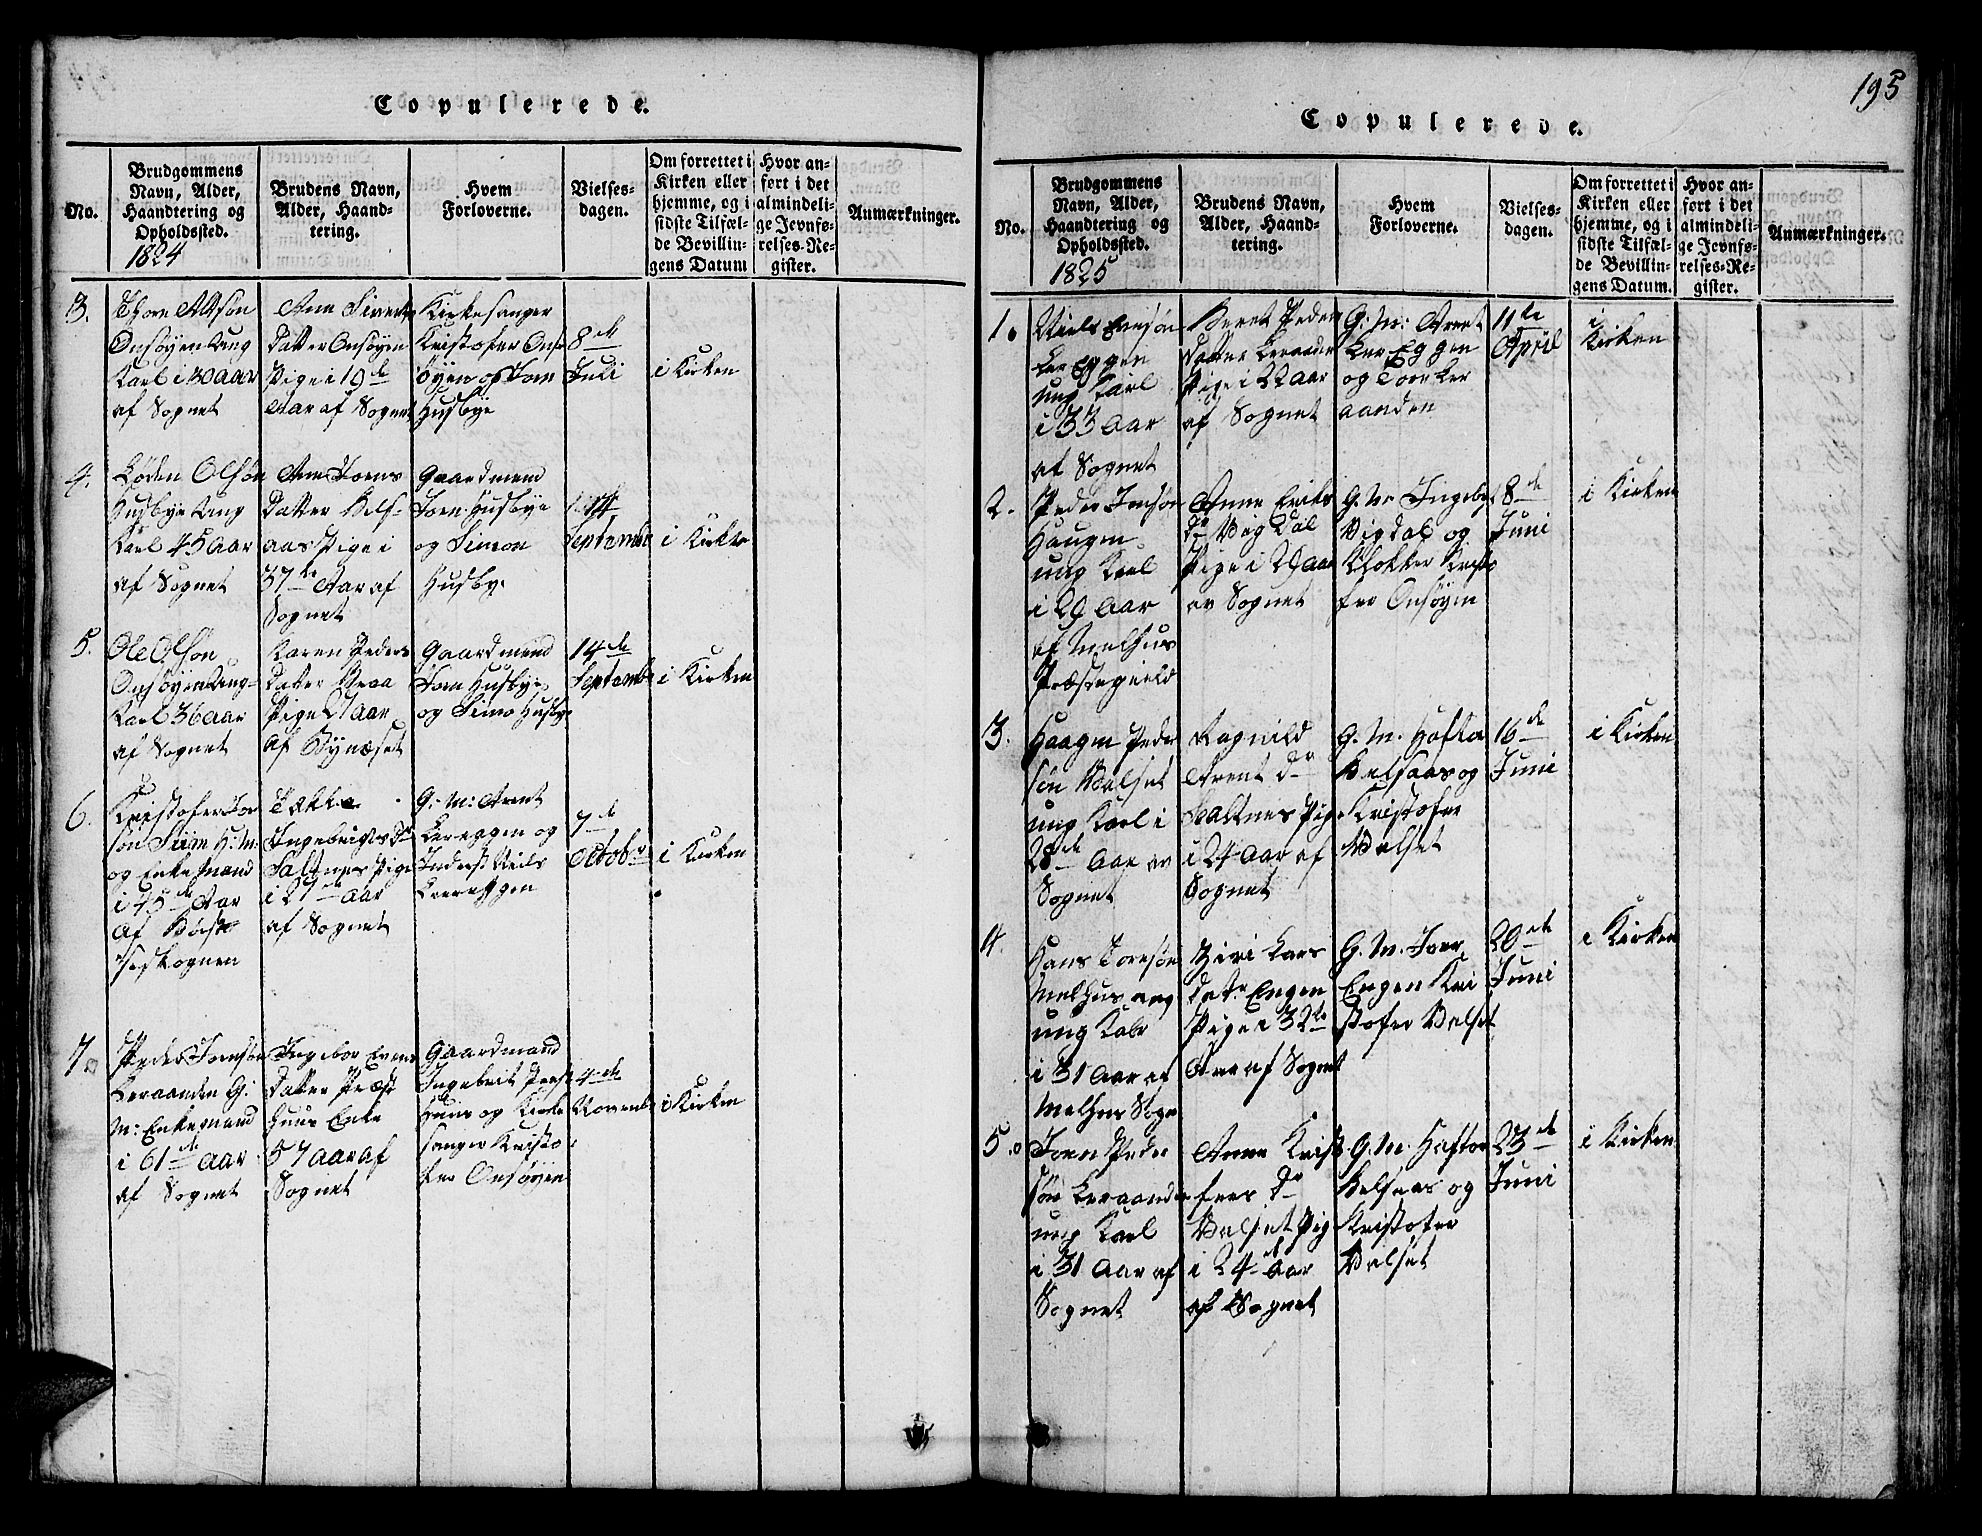 Copulerede.
No.
Brudgommens
Navn, Alder,
Haandtering og
Opholdssted.
1824
Brudens Navn,
Alder, Haand-
tering.
Hvem
Forloverne.
Vielses-
dagen.
Om forrettet i
Kirken eller
hjemme, og i
sidste Tilfæl-
de Bevillin-
gens Datum
Hvor an-
ført i det
almindeli-
ge Jevnfø-
relses-Re-
gister.
Anmærkninger.
3.
Onsöyen Ung
Karl i 30 Aar
af Sognet
Ane Siverts
Datter Onsöyen
Pige i 19de
Aar af Sognet
Kirkesanger
Kristofer Ons
öyen og Joen
Husbye
8de
Juli
i Kirken
4.
Olsøn
Husbye Ung
Karl 45 Aar
af Sognet
Ane Joens
Datter Kels-
aas Pige i
37de Aar af
Sognet
Gaardmend
Joen Husbye
og Simon
Husby
14
September
i Kirke
5.
Ole Olsøn
Onsöyen Ung-
Karl 36 Aar
af Sognet
Karen Peders
Datter
Pige 27 Aar
af Bynæset
Gaardmend
Joen Husbye
og Simo Husby
14de
Septemb
i Kirken
6.
Kristofer Jon
søn H: M:
og Enkemand
i 45de Aar
af
Ingebrigts Dr
Saltnes Pige
i 27de Aar
af Sognet
G: M: Arent
Lereggen og
Inderst Niels
Lereggen
7de
Octobr
i Kirken
7.
Peder Joensøn
Leraanden G:
M: Enkemand
i 61de Aar
af Sognet
Ingebor Evens
Datter Præst
huus Enke
57 Aar af
Sognet
Gaardmand
Ingebrit Prest
Huus og Kirke
sanger Kristo
fer Onsöyen
4de
Novemb
i Kirken
195
Copulerede.
No.
Brudgommens
Navn, Alder,
Haandtering og
Opholdssted.
1825
Brudens Navn,
Alder, Haand-
tering.
Hvem
Forloverne.
Vielses-
dagen.
Om forrettet i
Kirken eller
hjemme, og i
sidste Tilfæl-
de Bevillin-
gens Datum.
Hvor an-
ført i det
almindeli-
ge Jevnfø-
relses-Re-
gister.
Anmærkninger.
1.
Niels Evensøn
Ler Eggen
ung Karl
i 33 Aar
af Sognet
Beret Peders
Datter Leraanden
Pige i 22 Aar
af Sognet
G: M: Arent
Ler Eggen
og Toor Ler
aanden
11te
April
i
Kirken
2.
Peder Jensøn
Haugen
ung Karl
i 29 Aar
af Melhus
Præstegield
Anne Eriks
Dr Vigdal
Pige i 29 Aar
av Sognet
G. M. Ingebr
Vigdal og
Klokker Kristo
fer Onsøyen
8de
Juni
i Kirken
3.
Haagen Peder
søn Valset
ung Karl i
28de Aar av
Sognet
Ragnild
Arent Dr
Saltnes Pige
i 24 Aar af
Sognet
G. M. Haftor
Kelsaas og
Kristofer
Valset
16de
Juni
i Kirken
4.
Hans Toresøn
Melhus
ung Kabr
i 31 Aar af
Melhus Sogn
Ziri Lars
datr Engen
Pige i 32te
Aar af Sognet
G. M. Iver
Engen Kri
stofer Valset
20de
Juni
i Kirken
5.
Joen Peder
søn Leraanden
ung Karl
i 31 Aar af
Sognet
Anne Krist
fers Dr
Valset Pig
i 24de Aar
af Sognet
G. M. Haftor
Kelsaas og
Kristofer
Valset
23de
Juni
i Kirken